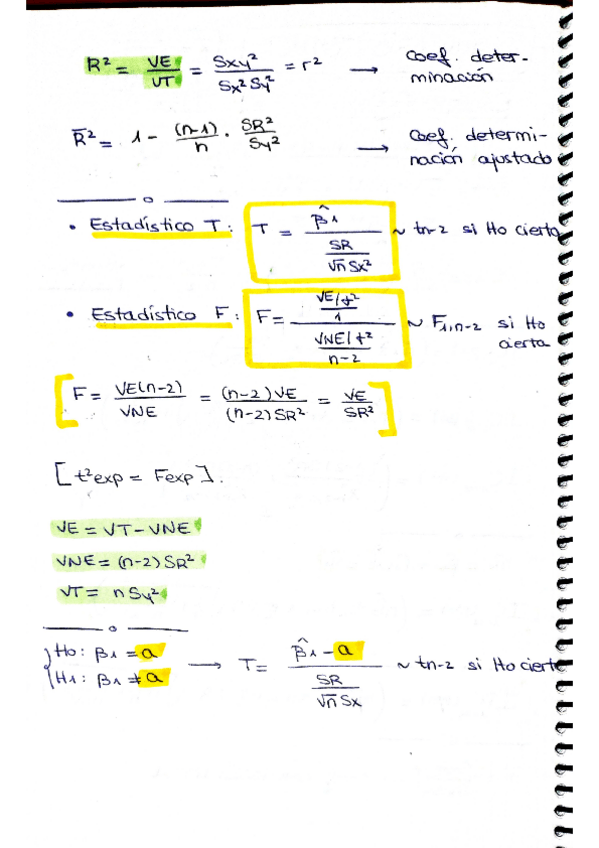 R² = VE/VT = Sxy²/Sx² Sy² = r² → Coef. deter-
minación
R̄² = 1 - (n-1)/n · SR²/Sy² → Coef. determi-
nación ajustado
• Estadístico T: T = β̂1 / (SR/√n Sx²) ~ tn-2 si Ho cierta
• Estadístico F: F = (VE/σ²/1) / (VNE/σ²/n-2) ~ F1,n-2 si Ho
cierta
[F = VE(n-2)/VNE = (n-2)VE/(n-2)SR² = VE/SR²]
[t²exp = Fexp].
VE = VT - VNE
VNE = (n-2) SR²
VT = n Sy²
{Ho: β1 = a
H1: β1 ≠ a → T = (β̂1 - a) / (SR/√n Sx) ~ tn-2 si Ho cierta